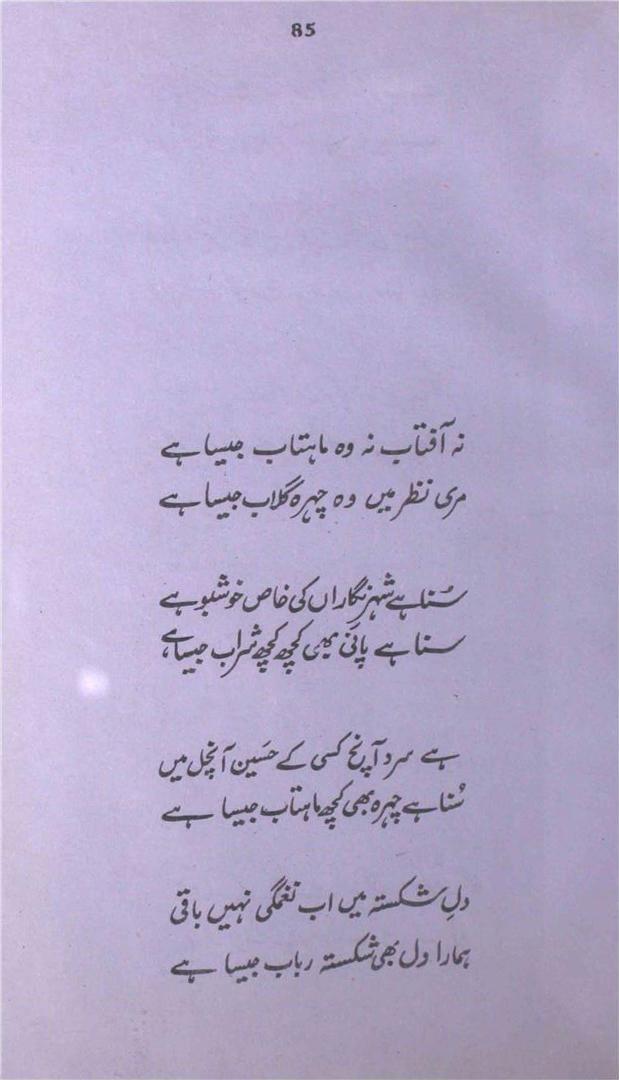 85
نہ آفتاب نہ وہ ماہتاب جیسا ہے
مری نظر میں وہ چہرہ گلاب جیسا ہے
سُنا ہے شہرِ نگاراں کی خاص خوشبو ہے
سنا ہے پانی بھی کچھ کچھ شراب جیسا ہے
ہے سرد آنچ کسی کے حَسین آنچل میں
سُنا ہے چہرہ بھی کچھ ماہتاب جیسا ہے
دلِ شکستہ میں اب نغمگی نہیں باقی
ہمارا دل بھی شکستہ رباب جیسا ہے